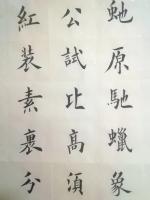 虵原馳蠟象
公試比高湏
紅裝素裹分